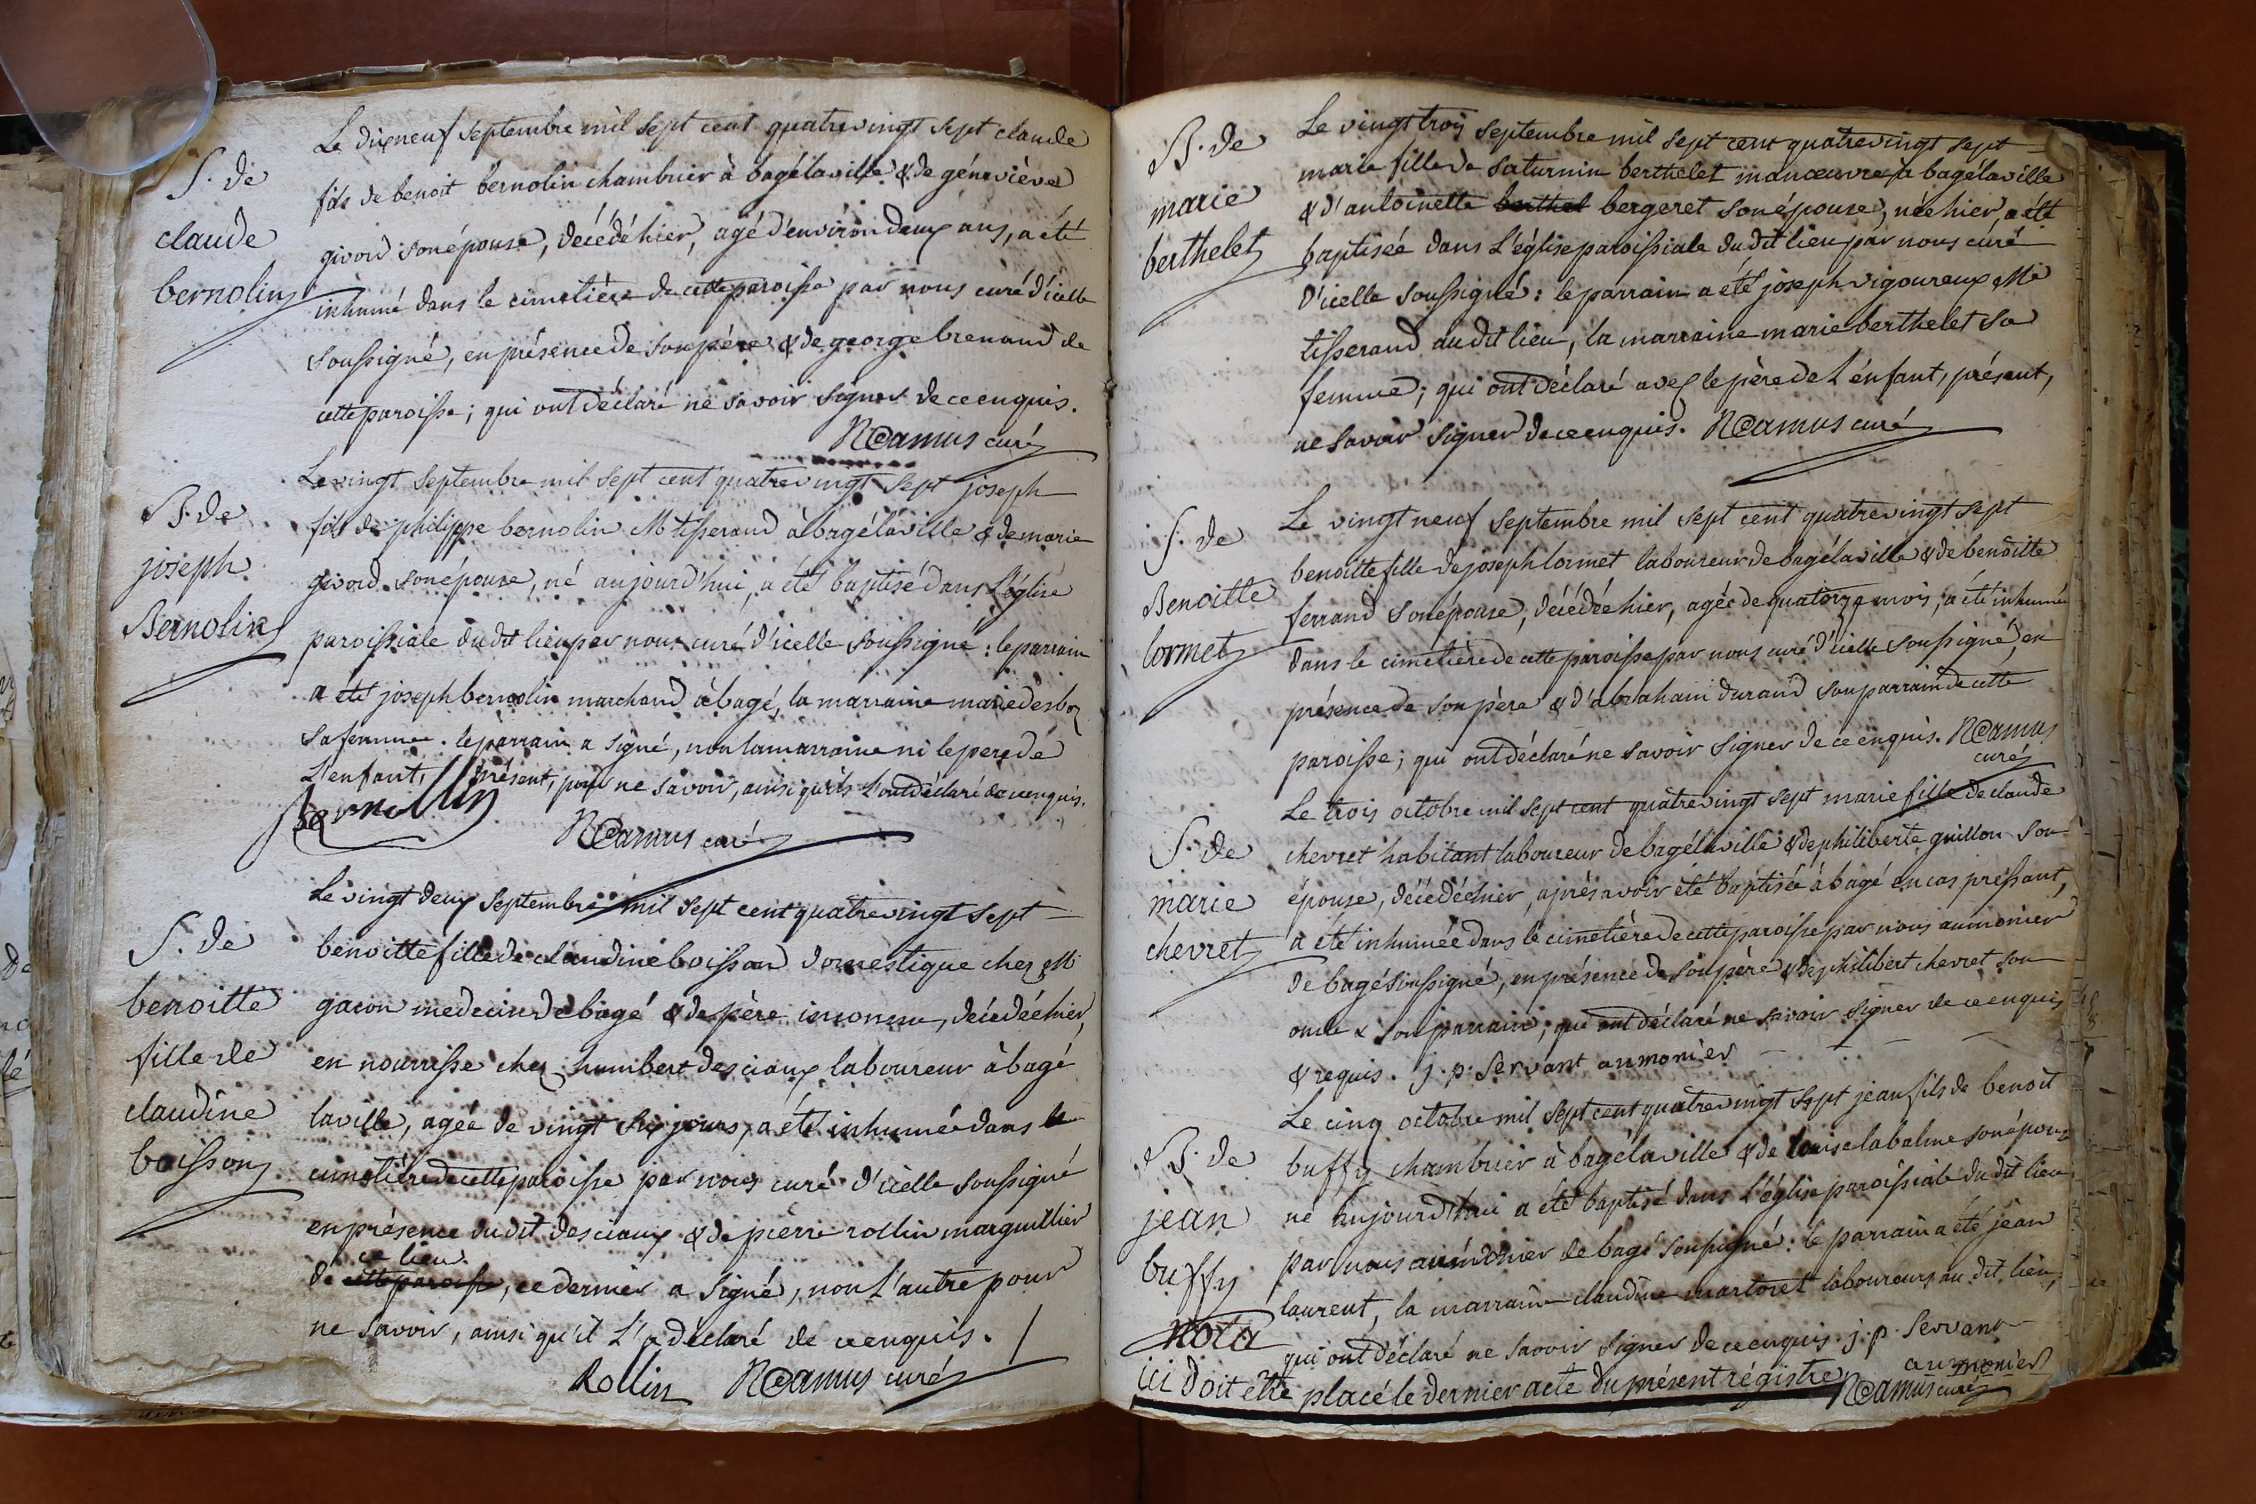 S. de
claude
bernolin
Le dixneuf septembre mil sept cent quatre vingt sept claude
fils de benoit bernolin chambrier à bagélaville & de géneviève
givord son épouse, décédé hier, agé d'environ deux ans, a été
inhumé dans le cimetière de cette paroisse par nous curé d'icelle
soussigné, en présence de son père & de george brenaud de
cette paroisse ; qui ont déclaré ne savoir signer de ce enquis.
curé
B. de
joseph
Bernolin
Le vingt septembre mil sept cent quatre vingt sept joseph
fils de philippe bernolin M tisserand à bagélaville & de marie
givord son épouse, né aujourd'hui, a été baptisé dans l'église
paroissiale du dit lieu par nous curé d'icelle soussigné : le parrain
a été joseph bernolin marchand à bagé, la marraine marie desboz
sa femme. le parrain a signé, non la marraine ni le pere de
L'enfant, présent, pour ne savoir, ainsi qu'ils l'ont déclaré de ce enquis.
Bernollin
curé
S. de
benoitte
fille de
claudine
boisson
Le vingt deux septembre mil sept cent quatre vingt sept
benoitte fille de claudine boisson domestique chez Mr
gacon medecin de bagé & de père inconnu, décédée hier,
en nourrisse chez humbert desciaux laboureur à bagé
laville, agée de vingt six jours, a été inhumée dans le
cimetière de cette paroisse par nous curé d'icelle soussigné
en présence du dit desciaux & de pierre rollin marguillier
ce lieu
de cette paroisse, ce dernier a signé, non l'autre pour
ne savoir, ainsi qu'il l'a déclaré de ce enquis.
Rollin curé
B. de
marie
berthelet
Le vingt trois septembre mil sept cent quatre vingt sept
marie fille de saturnin berthelet manoeuvre à bagélaville
& d'antoinette berthel bergeret son épouse, née hier, a été
baptisée dans l'église paroissiale du dit lieu par nous curé
d'icelle soussigné : le parrain a été joseph vigoureux Me
tisserand au dit lieu, la marraine marie berthelet sa
femme ; qui ont déclaré avec le père de l'enfant, présent,
ne savoir signer de ce enquis. curé
S. de
Benoitte
lormet
Le vingt neuf septembre mil sept cent quatre vingt sept
benoitte fille de joseph lormet laboureur de bagélaville & de benoitte
ferrand son épouse, décédée hier, agée de quatorze mois, a été inhumée
dans le cimetière de cette paroisse par nous curé d'icelle soussigné, en
présence de son père & d'abraham durand son parrain de cette
paroisse ; qui ont déclaré ne savoir signer de ce enquis.
curé
S. de
marie
chevret
Le trois octobre mil sept cent quatre vingt sept marie fille de claude
chevret habitant laboureur de bagélaville & de philiberte guillon son
épouse, décédée hier, après avoir été baptisée à bagé en cas pressant,
a été inhumée dans le cimetière de cette paroisse par nous aumonier
de bagé soussigné, en présence de son père & de philibert chevret son
oncle & son parrain ; qui ont déclaré ne savoir signer de ce enquis
& requis. j. p. Servant aumonier
B. de
jean
buffy
Le cinq octobre mil sept cent quatre vingt sept jean fils de benoit
buffy chambrier à bagélaville & de louise labalme son épouse
né aujourd'hui a été baptisé dans l'église paroissiale du dit lieu
par nous aumônier de bagé soussigné : le parrain a été jean
laurent, la marraine claudine martoret laboureurs au dit lieu,
qui ont déclaré ne savoir signer de ce enquis. j. p. Servant
aumonier
nota
ici doit être placé le dernier acte du présent régistre
curé